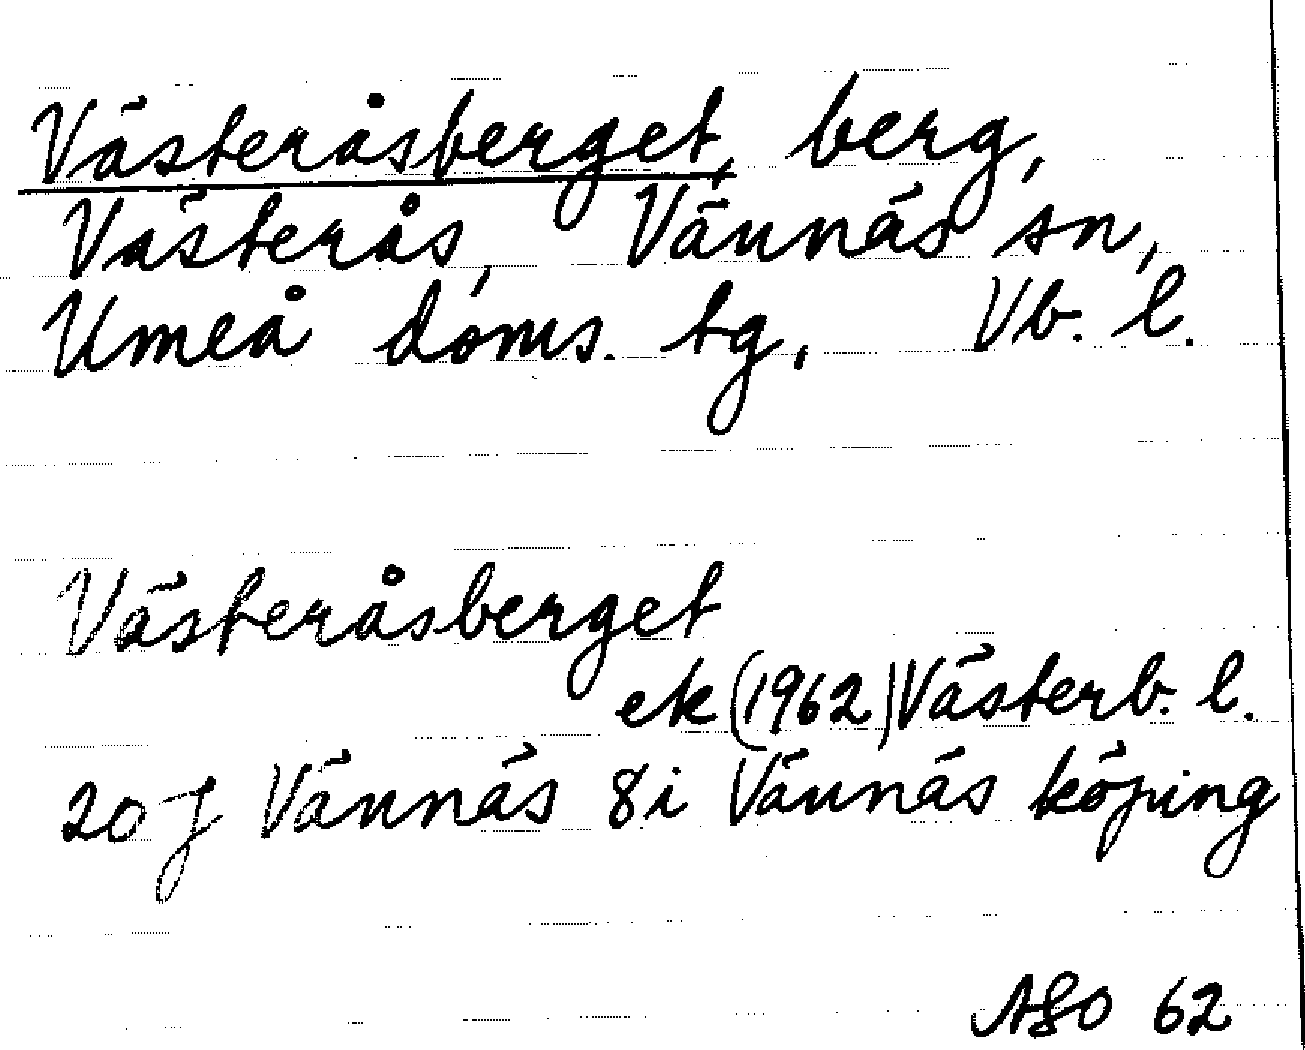 Västeråsberget, berg,
Västerås, Vännäs sn,
Umeå doms. tg, Vb. l.
Västeråsberget
ek (1962) Västerb. l.
20 J Vännäs 8i Vännäs köping
ASO 62